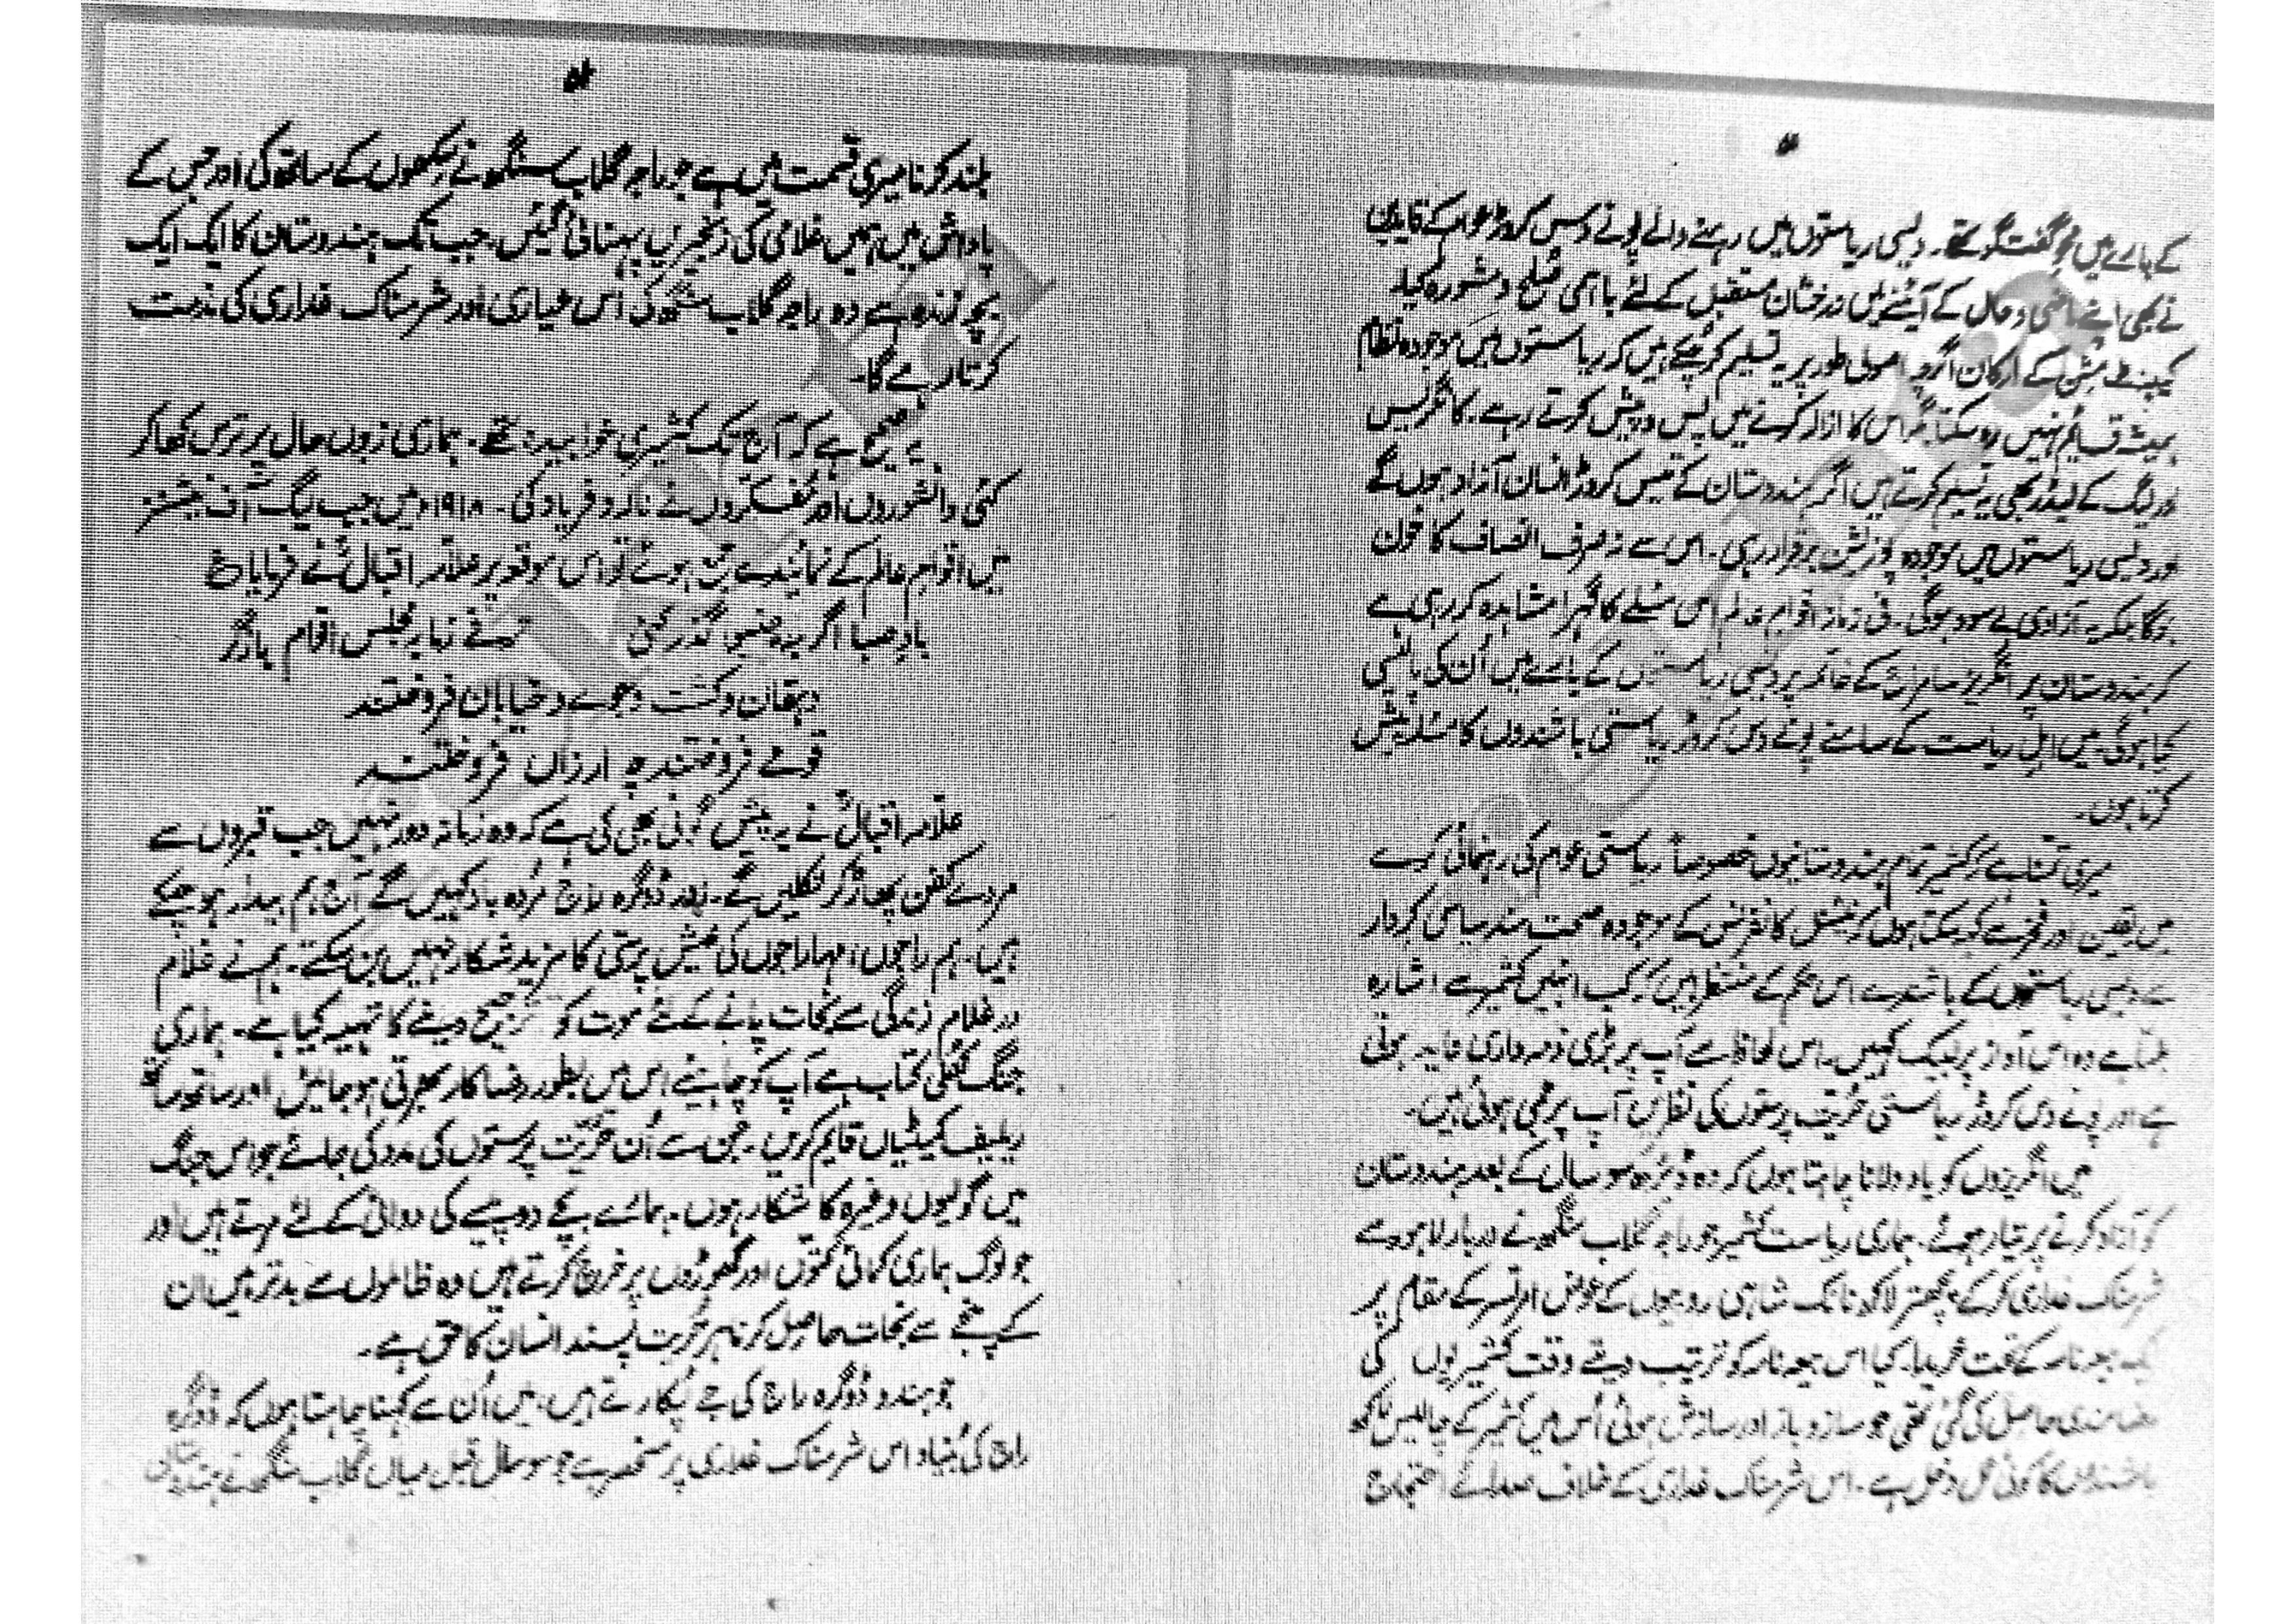 کے بارے میں محو گفت گو تھے۔ دیسی ریاستوں میں رہنے والے پونے دس کروڑ عوام کے قایدین
نے بھی اپنے ماضی و حال کے آئینے میں درخشان مستقبل کے لئے باہمی صلح و مشورہ کیا۔
کیبنٹ مشن کے ارکان اگرچہ اصولی طور پر یہ تسلیم کر چکے ہیں کہ ریاستوں میں موجودہ نظام
ہمیشہ قایم نہیں رہ سکتا مگر اس کا ازالہ کرنے میں پس و پیش کرتے رہے۔ کانگریس
اور لیگ کے لیڈر بھی یہ تسلیم کرتے ہیں اگر ہندوستان کے تیس کروڑ انسان آزاد ہوں گے
اور دیسی ریاستوں میں موجودہ پوزیشن برقرار رہی۔ اس سے نہ صرف انصاف کا خون
ہوگا بلکہ یہ آزادی بے سود ہوگی۔ فی زمانہ اقوام عالم اس مسئلے کا گہرا مشاہدہ کر رہی ہے
کہ ہندوستان پر انگریز سامراج کے خاتمہ پر دیسی ریاستوں کے بارے میں اُن کی پالیسی
کیا ہوگی۔ میں اہل ریاست کے سامنے پونے دس کروڑ ریاستی باشندوں کا مسئلہ پیش
کرتا ہوں۔
میری تمنا ہے کہ کشمیر تمام ہندوستانیوں خصوصاً ریاستی عوام کی رہنمائی کرے
میں یقین اور فخر سے کہہ سکتا ہوں کہ نیشنل کانفرنس کے موجودہ صحت مند سیاسی کردار
سے دیسی ریاستوں کے باشندے اس حکم کے منتظر ہیں کہ کب انہیں کشمیر سے اشارہ
ملتا ہے وہ اس آواز پر لبیک کہیں۔ اس لحاظ سے آپ پر بڑی ذمہ داری عاید ہوتی
ہے اور پونے دس کروڑ ریاستی حریت پرستوں کی نظریں آپ پر جمی ہوئی ہیں۔
میں انگریزوں کو یاد دلانا چاہتا ہوں کہ وہ ڈیڑھ سو سال کے بعد ہندوستان
کو آزاد کرنے پر تیار ہوئے۔ ہماری ریاست کشمیر جو راجہ گلاب سنگھ نے دربار لاہور سے
شرمناک غداری کر کے پچھتر لاکھ نانک شاہی روپیوں کے عوض امرتسر کے مقام پر
ایک بیعہ نامہ کے تحت خریدا۔ کیا اس بیعہ نامہ کو ترتیب دیتے وقت کشمیریوں کی
رضامندی حاصل کی گئی تھی جو ساز و باز اور سازش ہوئی اُس میں کشمیر کے چالیس لاکھ
باشندوں کا کوئی عمل دخل ہے۔ اس شرمناک غداری کے خلاف صدائے احتجاج
بلند کرنا میری قسمت میں ہے جو راجہ گلاب سنگھ نے سکھوں کے ساتھ کی اور جس کے
پاداش میں ہمیں غلامی کی زنجیریں پہنائی گئیں۔ جب تک ہندوستان کا ایک ایک
بچہ زندہ ہے وہ راجہ گلاب سنگھ کی اس عیاری اور شرمناک غداری کی مذمت
کرتا رہے گا۔
یہ صحیح ہے کہ آج تک کشمیری خوابیدہ تھے۔ ہماری زبوں حال پر ترس کھا کر
کئی دانشوروں اور مفکروں نے نالہ و فریاد کی۔ ۱۹۱۸ء میں جب لیگ آف نیشنز
میں اقوام عالم کے نمایندے جمع ہوئے تو اس موقعہ پر علامہ اقبالؒ نے فرمایا ع
بادِ صبا اگر بہ جنیوا گذر کنی حرفے زما بہ مجلس اقوام باز گو
دہقان و کشت و جوئے و خیابان فروختند
قومے فروختند چہ ارزاں فروختند
علامہ اقبالؒ نے یہ پیش گوئی بھی کی ہے کہ وہ زمانہ دور نہیں جب قبروں سے
مردے کفن پھاڑ کر نکلیں گے۔ اور ڈوگرہ راج مُردہ باد کہیں گے آج ہم بیدار ہو چکے
ہیں۔ ہم راجوں، مہاراجوں کی عیش پرستی کا مزید شکار نہیں بن سکتے۔ ہم نے غلام
در غلام زندگی سے نجات پانے کے لئے موت کو ترجیح دینے کا تہیہ کیا ہے۔ ہماری
جنگ کھلی کتاب ہے آپ کو چاہیئے اس میں بطور رضاکار بھرتی ہو جائیں اور ساتھ ساتھ
ریلیف کمیٹیاں قایم کریں۔ جن سے اُن حریت پرستوں کی مدد کی جائے جو اس جنگ
میں گولیوں وغیرہ کا شکار ہوں۔ ہمارے بچے دو پیسے کی دوائی کے لئے مرتے ہیں اور
جو لوگ ہماری کمائی کتوں اور گھوڑوں پر خرچ کرتے ہیں وہ ظالموں سے بدتر ہیں ان
کے پنجے سے نجات حاصل کرنا ہر حریت پسند انسان کا حق ہے۔
جو ہندو ڈوگرہ راج کی جے پکارتے ہیں، میں اُن سے کہنا چاہتا ہوں کہ ڈوگرہ
راج کی بنیاد اس شرمناک غداری پر منحصر ہے جو سو سال قبل میاں گلاب سنگھ نے ہندوستانی